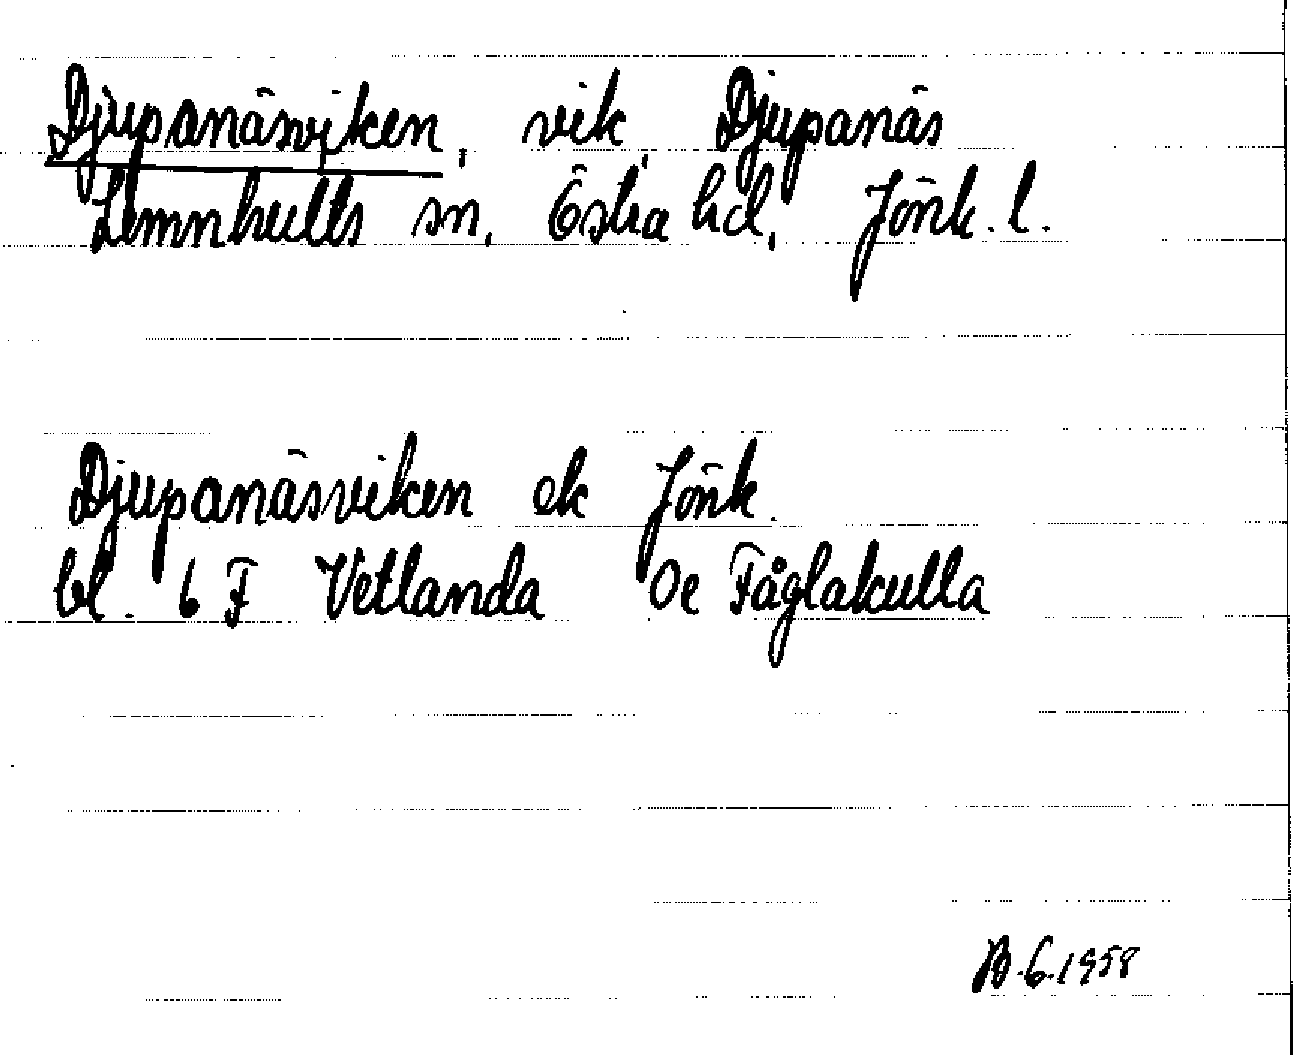 Djupanäsviken, vik, Djupanäs
Lemnhults sn, Östra hd, Jönk. l.
Djupanäsviken ek Jönk.
bl. 6 F Vetlanda 0e Fåglakulla
B.G.1958